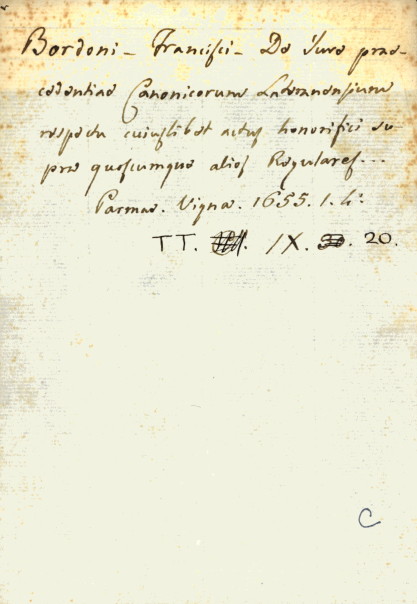 Bordoni - Francisci - De iure prae-
cedentiae Canonicorum Lateranensium
respectu cuiuslibet actus honorifici su-
pra quoscumque alios Regulares...
Parmae. Vigna. 1655. 1. 4°.
TT. IX. 20.
C